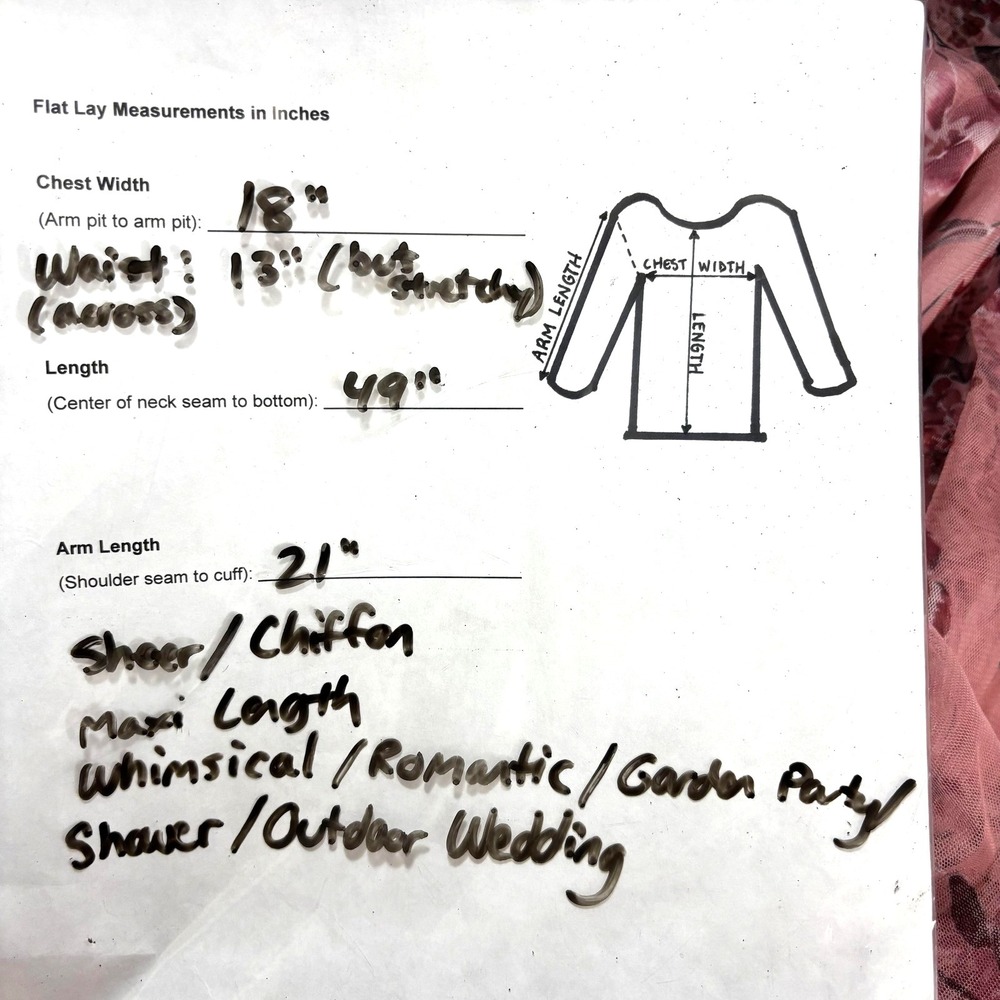 Flat Lay Measurements in Inches
Chest Width
(Arm pit to arm pit): 18"
Waist: 13" (but stretchy)
(across)
Length
(Center of neck seam to bottom): 49"
CHEST WIDTH
ARM LENGTH
LENGTH
Arm Length
(Shoulder seam to cuff): 21"
Sheer/Chiffon
Maxi Length
Whimsical/Romantic/Garden Party/
Shower/Outdoor Wedding